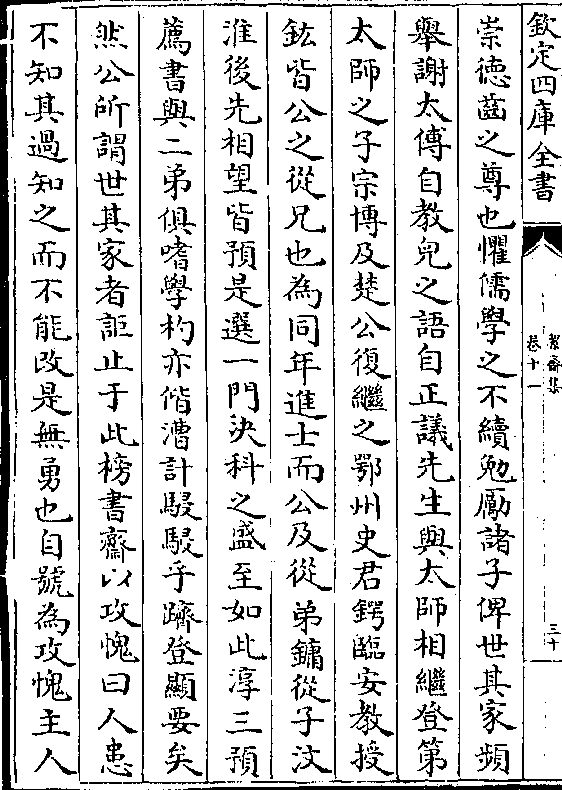 欽定四庫全書
絜齋集
卷十一
三十
崇德齒之尊也懼儒學之不續勉勵諸子俾世其家頻
舉謝太傅自教兒之語自正議先生與太師相繼登第
太師之子宗博及楚公復繼之鄂州史君鍔臨安教授
鉉皆公之從兄也為同年進士而公及從弟鏞從子汶
淮後先相望皆預是選一門決科之盛至如此淳三預
薦書與二弟俱嗜學杓亦偕漕計駸駸乎躋登顯要矣
然公所謂世其家者詎止于此榜書齋以攻愧曰人患
不知其過知之而不能改是無勇也自號為攻愧主人